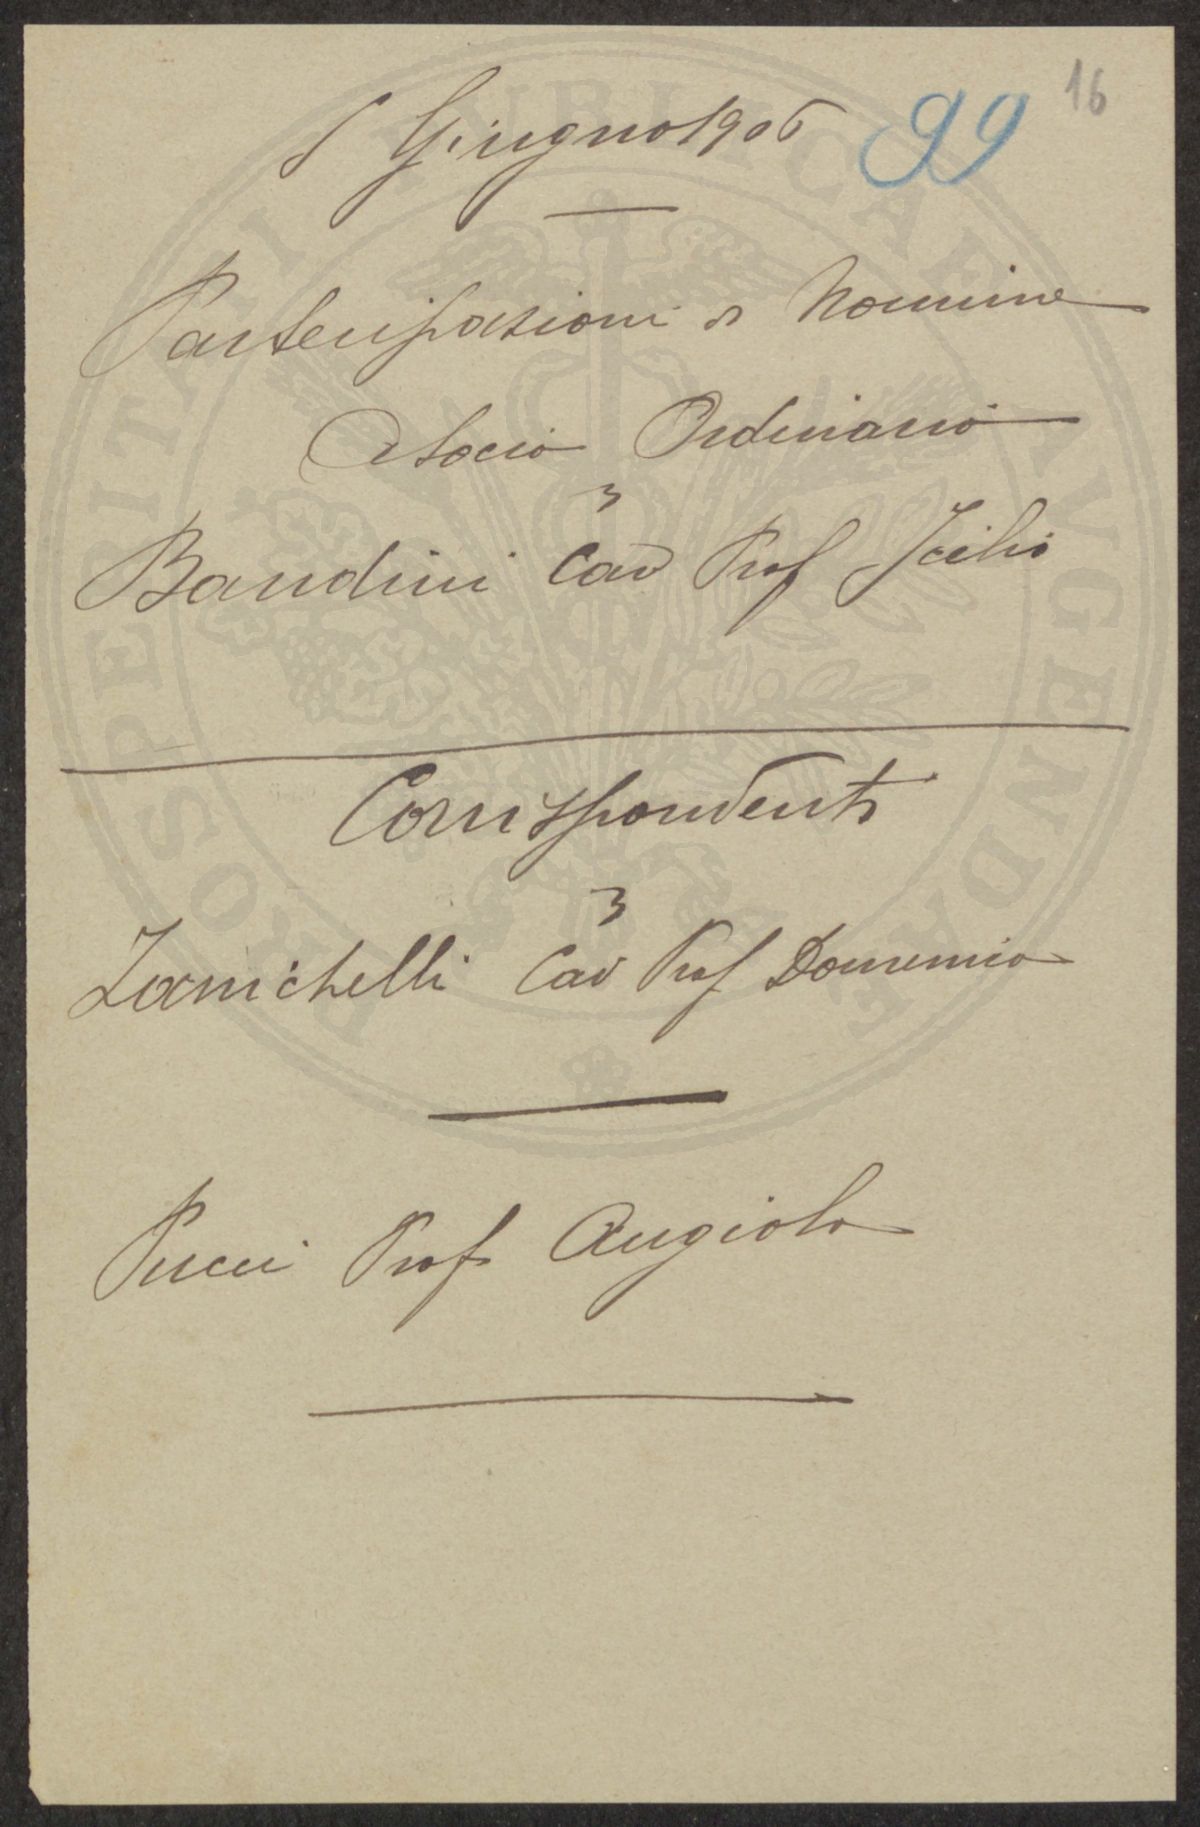 16
99
5 Giugno 1906
Partecipazioni di Nomine
A Socio Ordinario
Bandini Cav Prof Icilio
Corrispondenti
Zanichelli Cav Prof Domenico
Pucci Prof Angiolo
PROSPERITATI PVBLICAE AVGENDAE